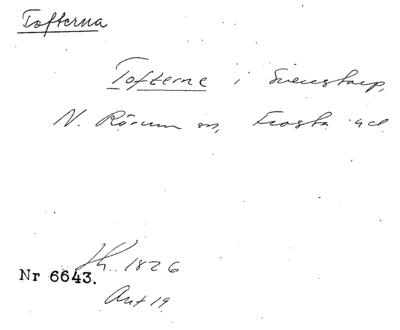 Tofterna
Tofterne i Svenstorp,
N. Rörum sn, Frosta hd
1826
Nr 6643.
Ant 19